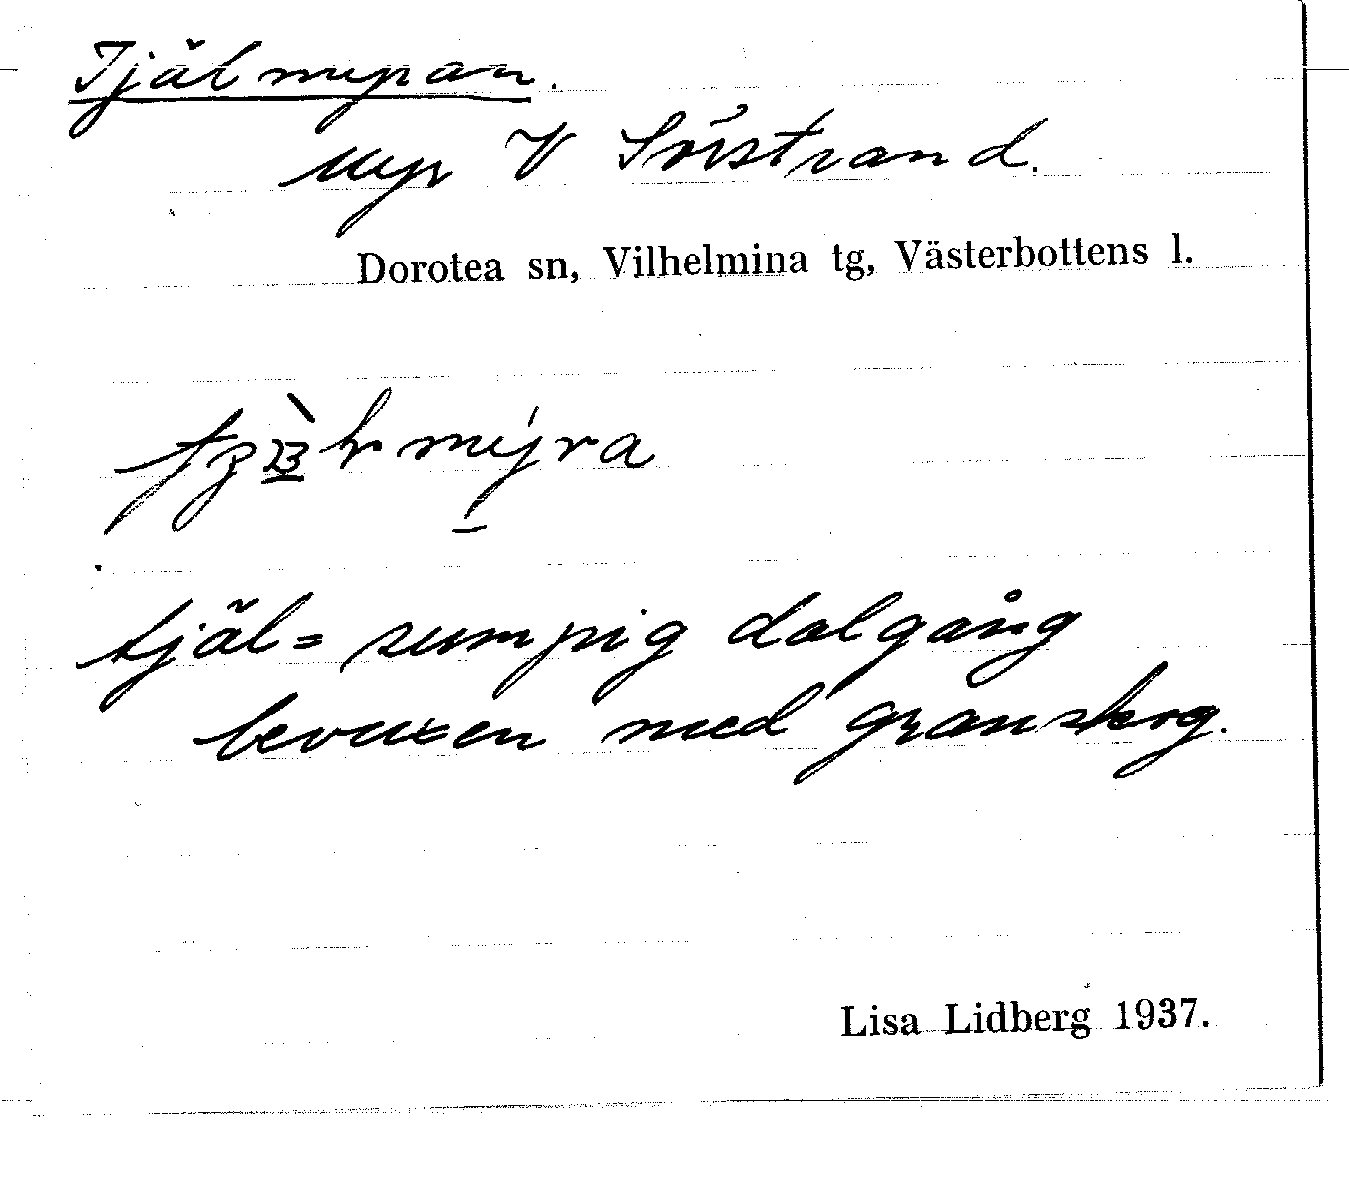 Tjälmyran.
Myr V Svistrand.
Dorotea sn, Vilhelmina tg, Västerbottens l.
tjäl = sumpig dalgång
bevuxen med granskog.
Lisa Lidberg 1937.